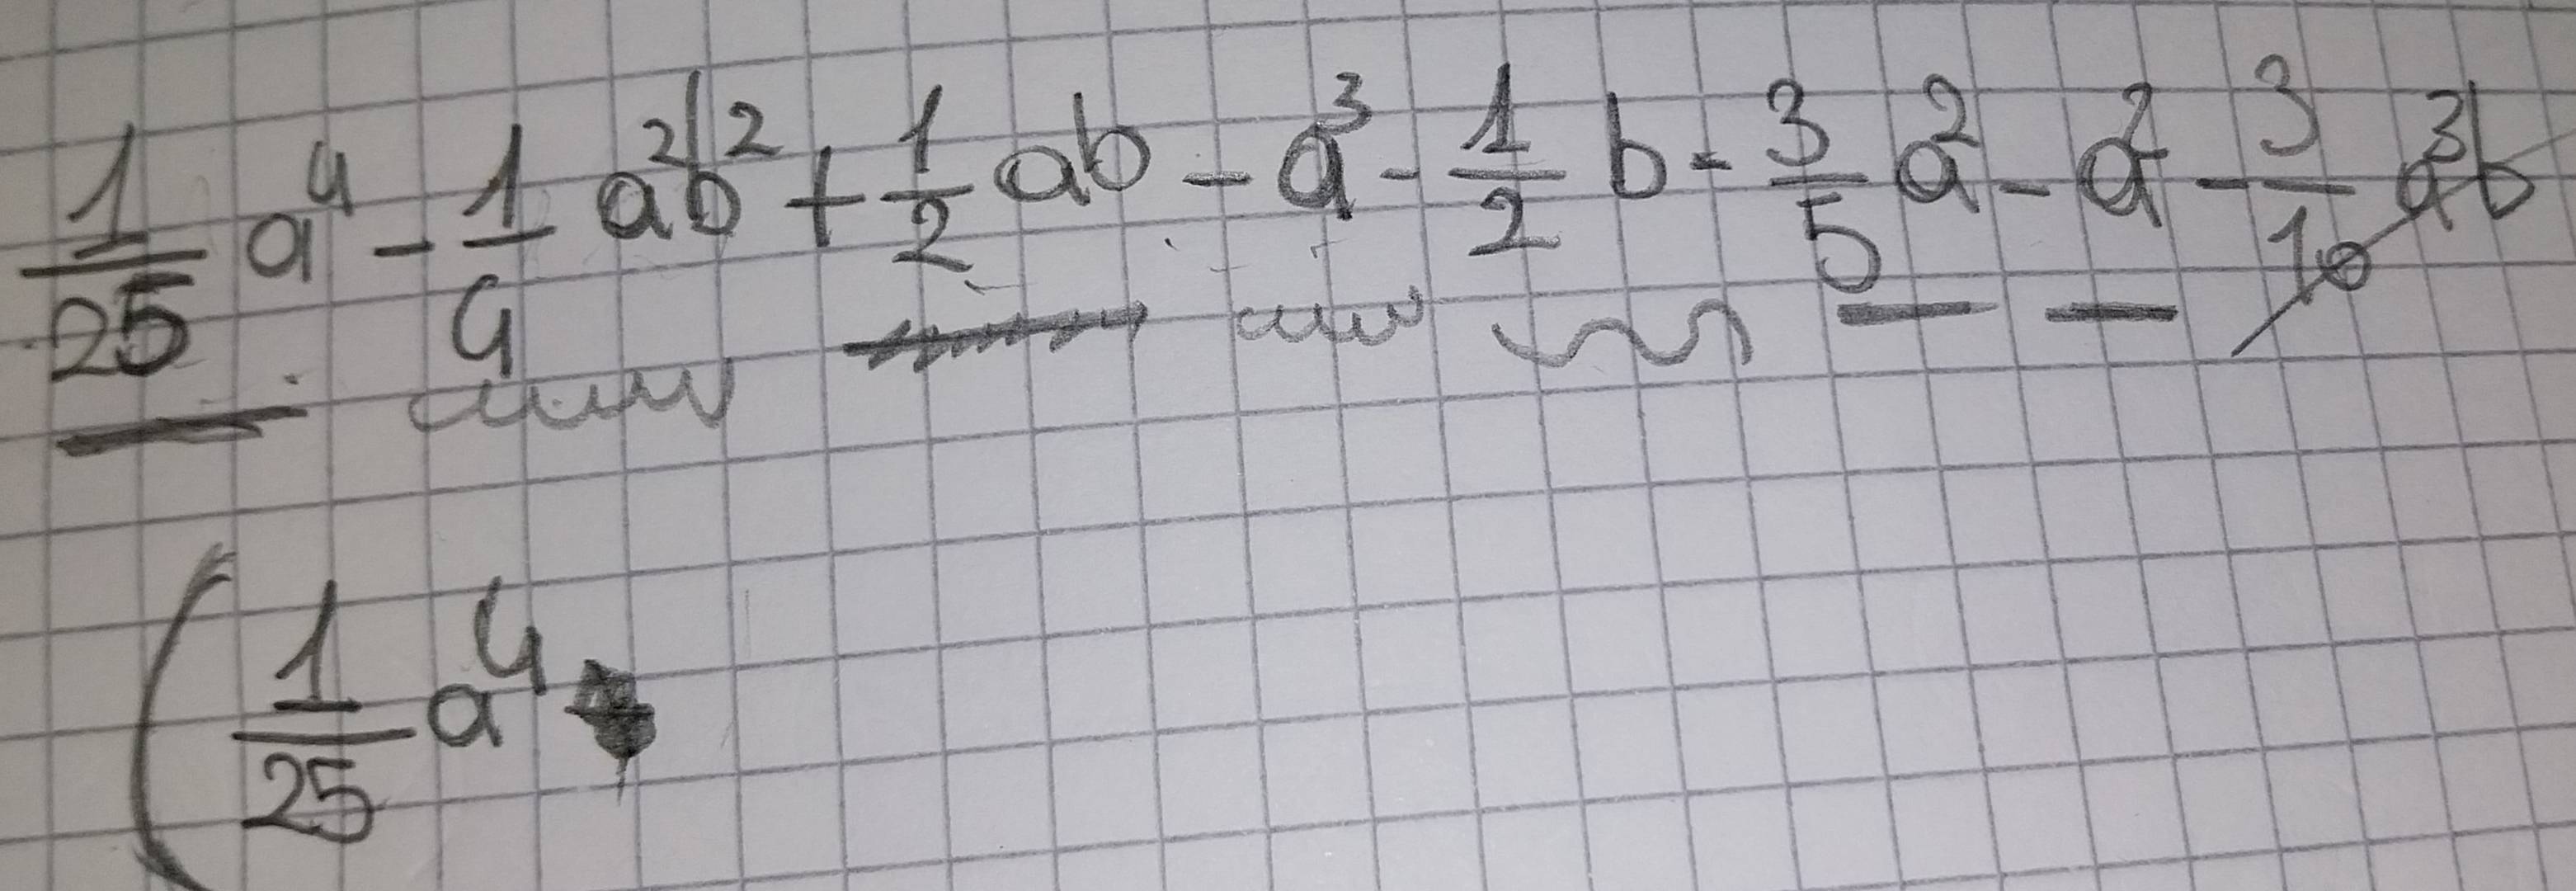 1/25 a⁴ - 1/4 a²b² + 1/2 ab - a³ - 1/2 b - 3/5 a² - a² - 3/10 a³b
(1/25 a⁴